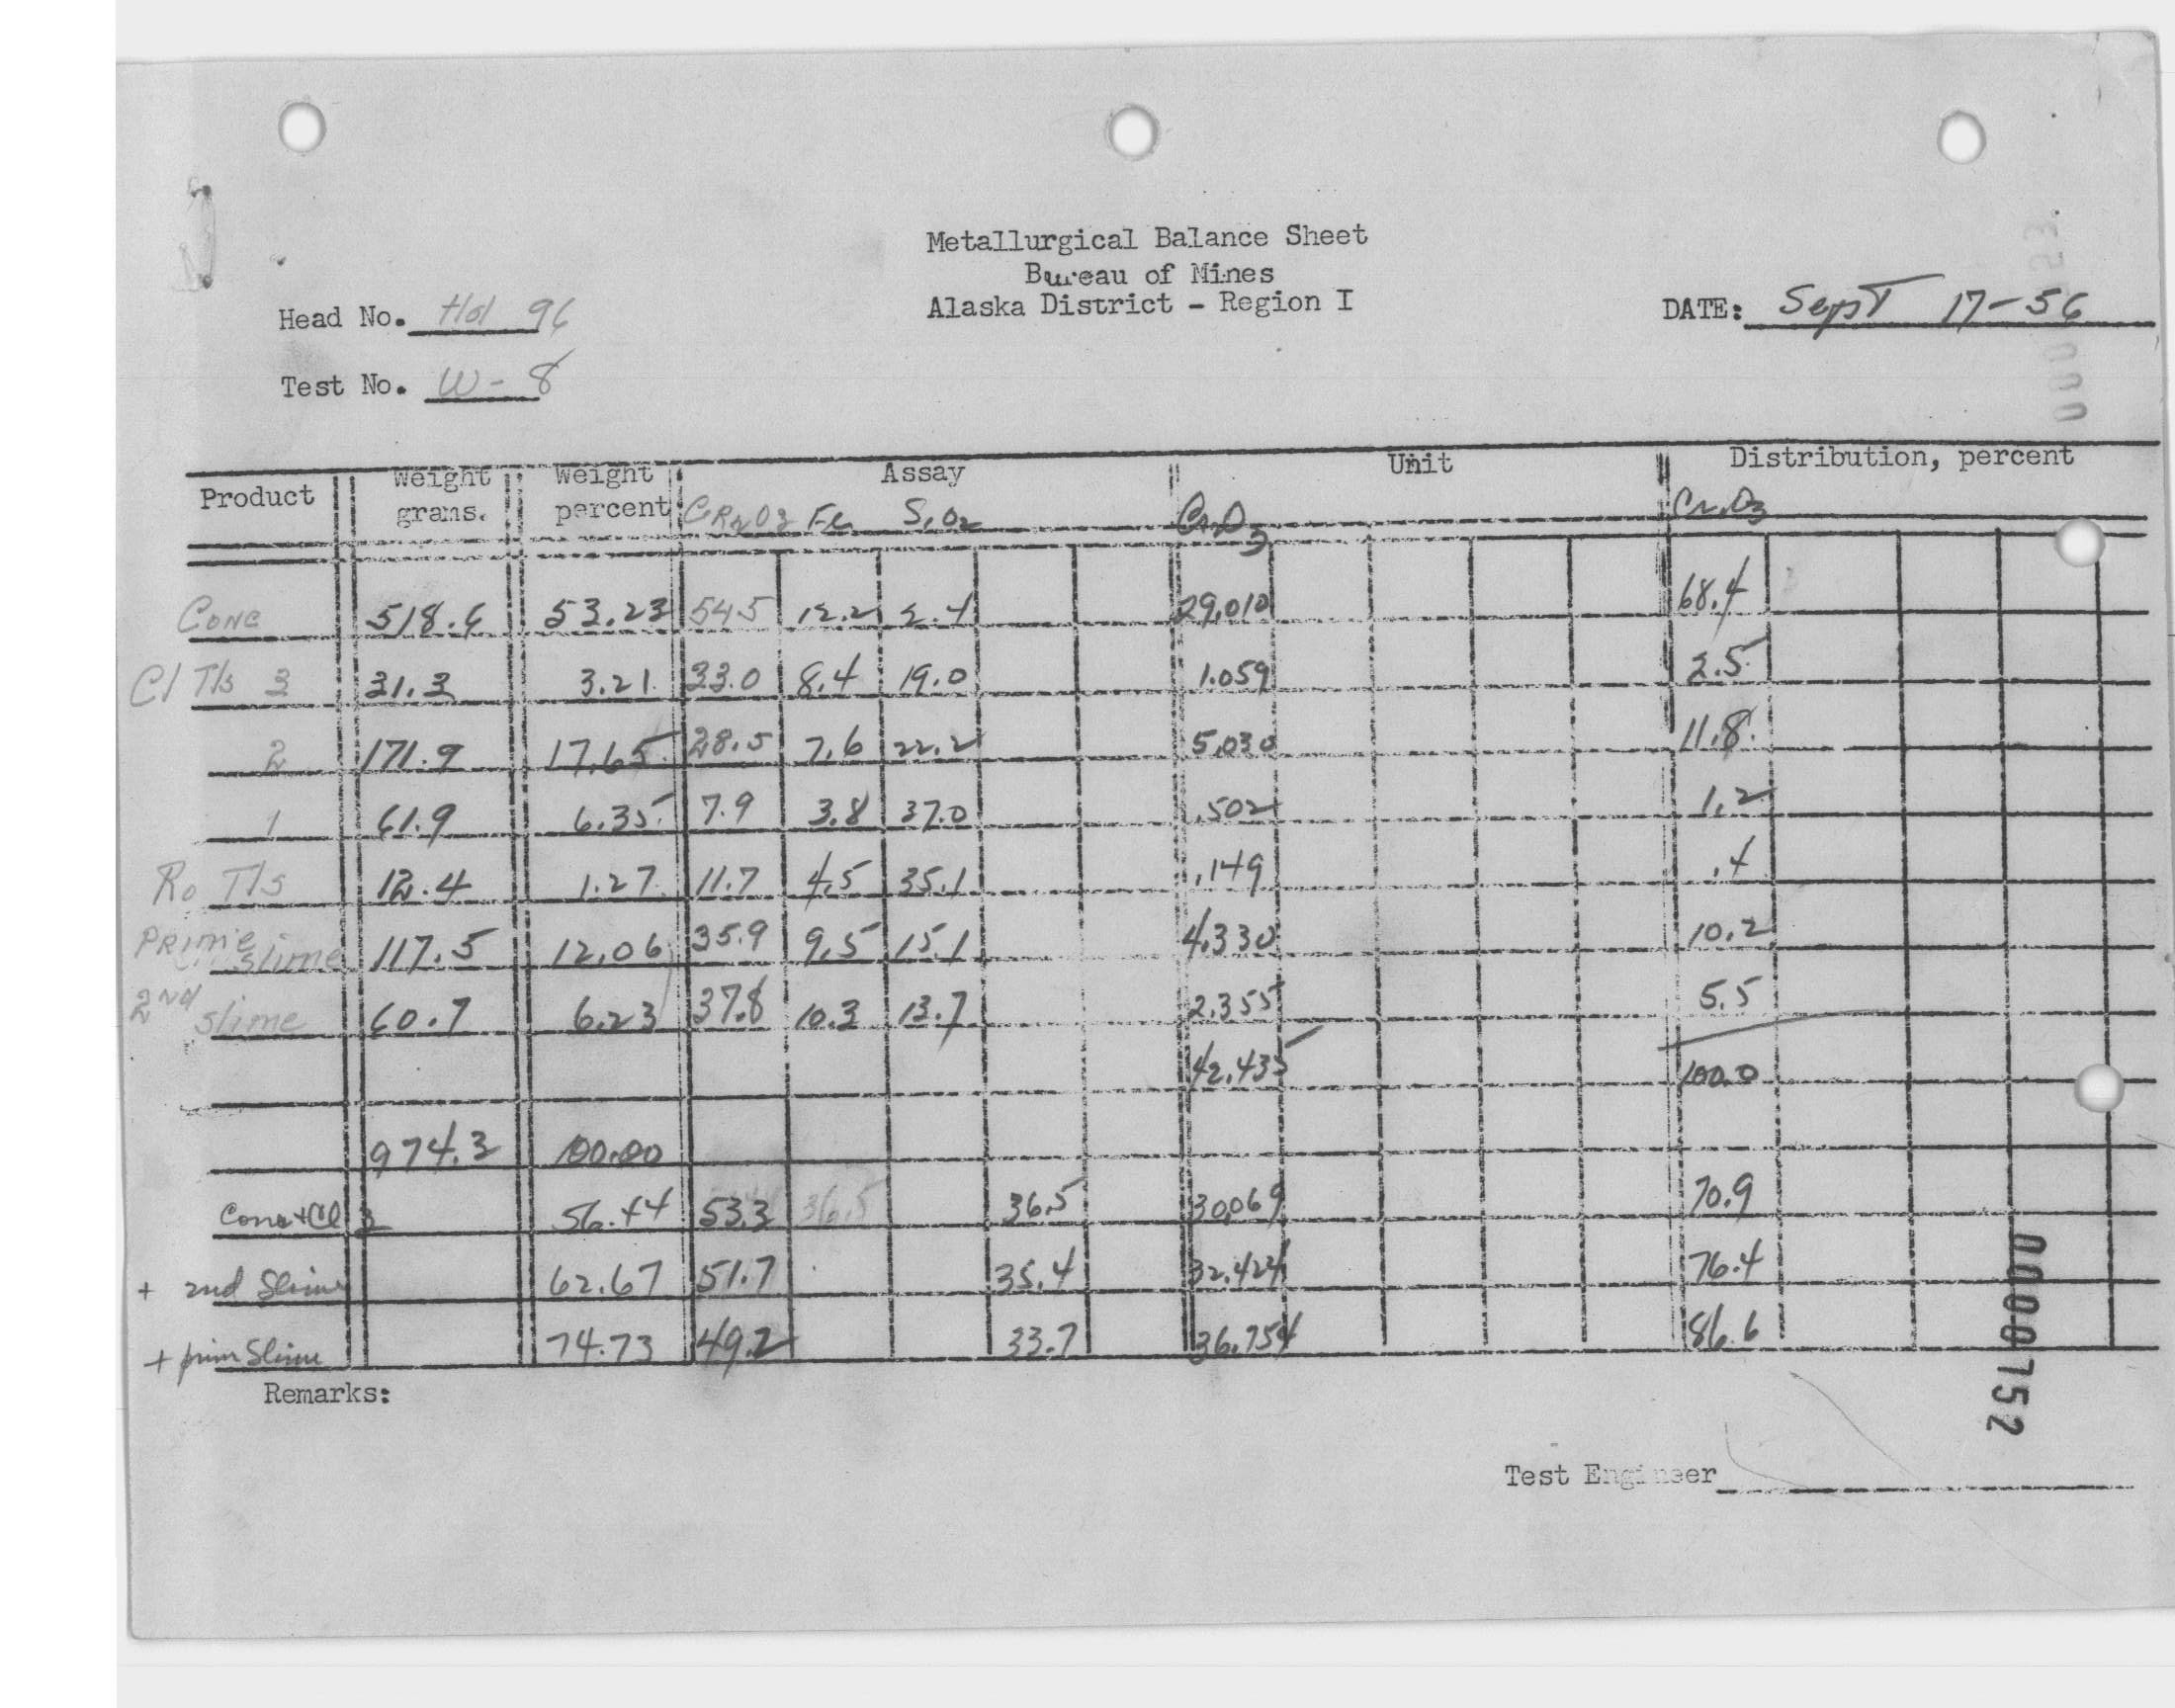 Metallurgical Balance Sheet
Bureau of Mines
Alaska District - Region I
Head No. Hol 96
DATE: Sept 17-56
Test No. W-8
Product Weight grams. Weight percent Assay Unit Distribution, percent
CR2O3 Fe SiO2 Cr2O3 Cr2O3
Conc 518.6 53.23 54.5 12.2 2.4 29.010 68.4
Cl Tls 3 31.3 3.21 33.0 8.4 19.0 1.059 2.5
2 171.9 17.65 28.5 7.6 22.2 5.030 11.8
1 61.9 6.35 7.9 3.8 37.0 .502 1.2
Ro Tls 12.4 1.27 11.7 4.5 35.1 .149 .4
PRime slime 117.5 12.06 35.9 9.5 15.1 4.330 10.2
2nd slime 60.7 6.23 37.8 10.3 13.7 2.355 5.5
42.435 100.0
974.3 100.00
Conc+Cl 3 56.44 53.3 36.5 36.5 30.069 70.9
+ 2nd Slime 62.67 51.7 35.4 32.424 76.4
+ prim Slime 74.73 49.2 33.7 36.754 86.6
Remarks:
Test Engineer
0000752